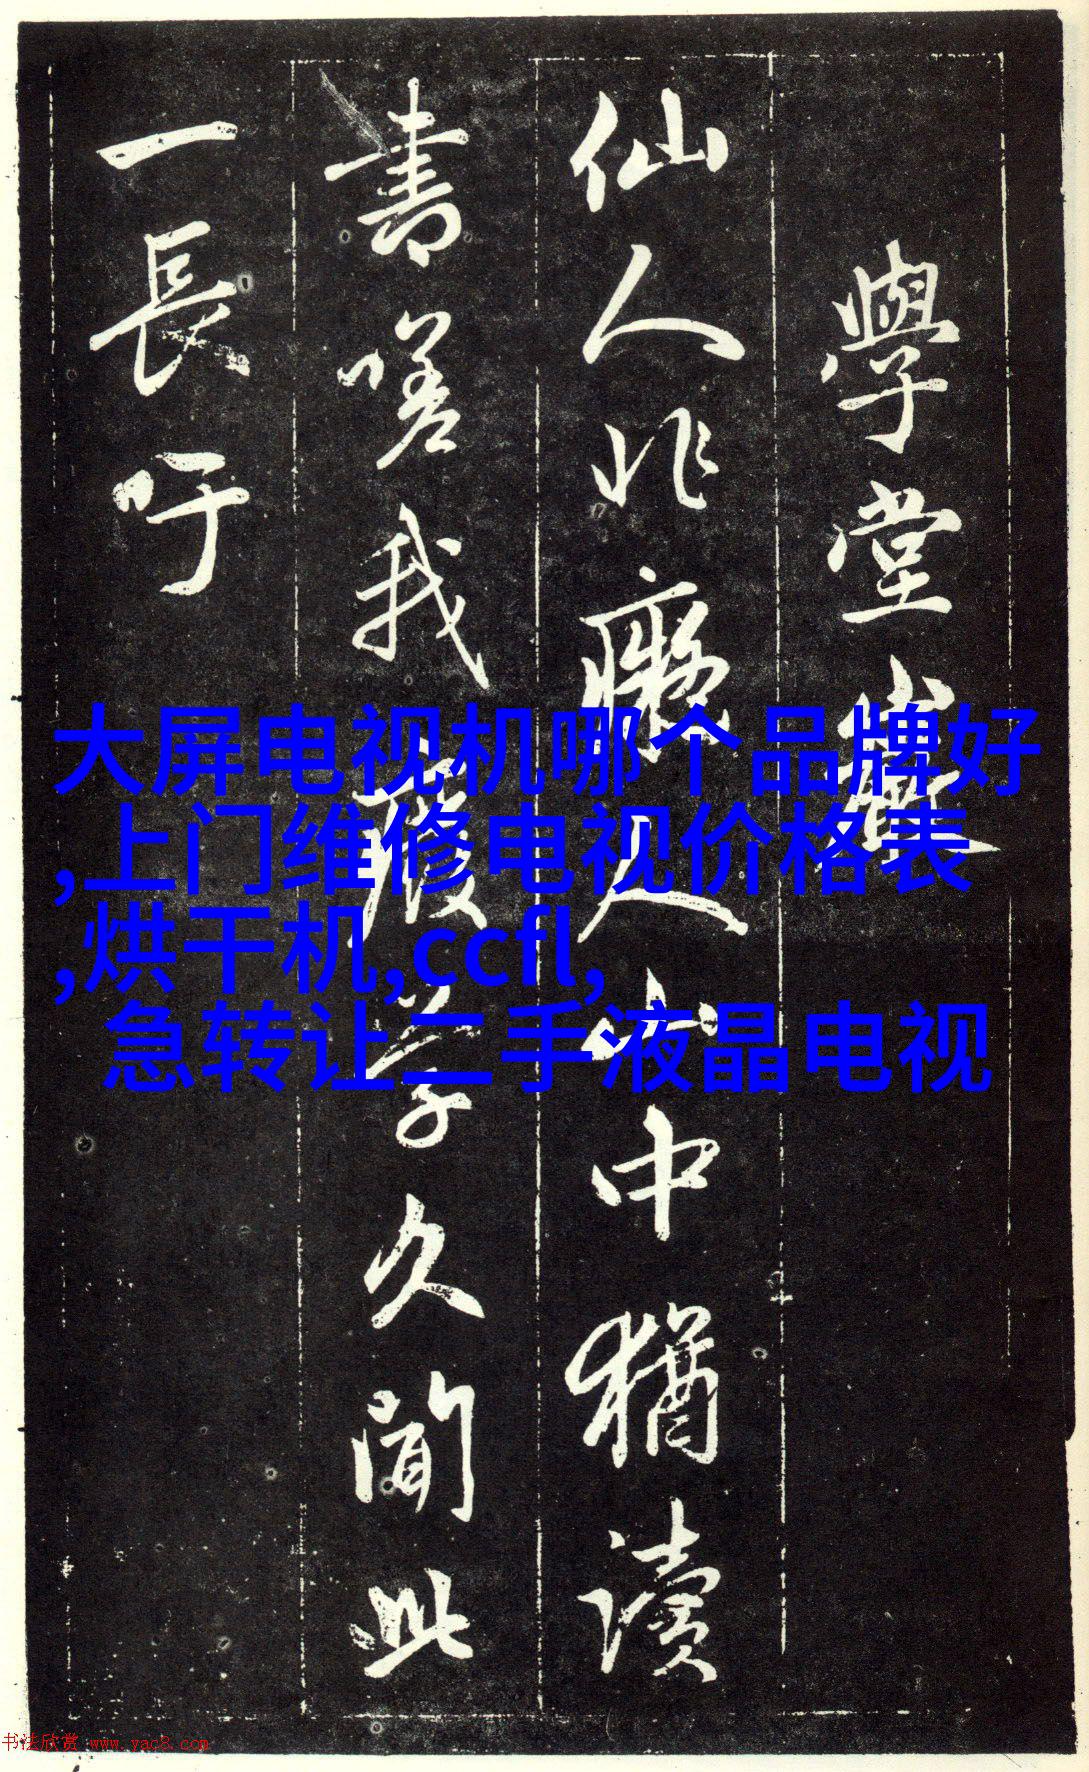 學堂巖
仙人非癡人山中猶讀
書嗟我廢學久聞此
一長吁
大屏电视机哪个品牌好
,上门维修电视价格表
,烘干机,ccfl,
急转让二手液晶电视
书法欣赏 www.yac8.com